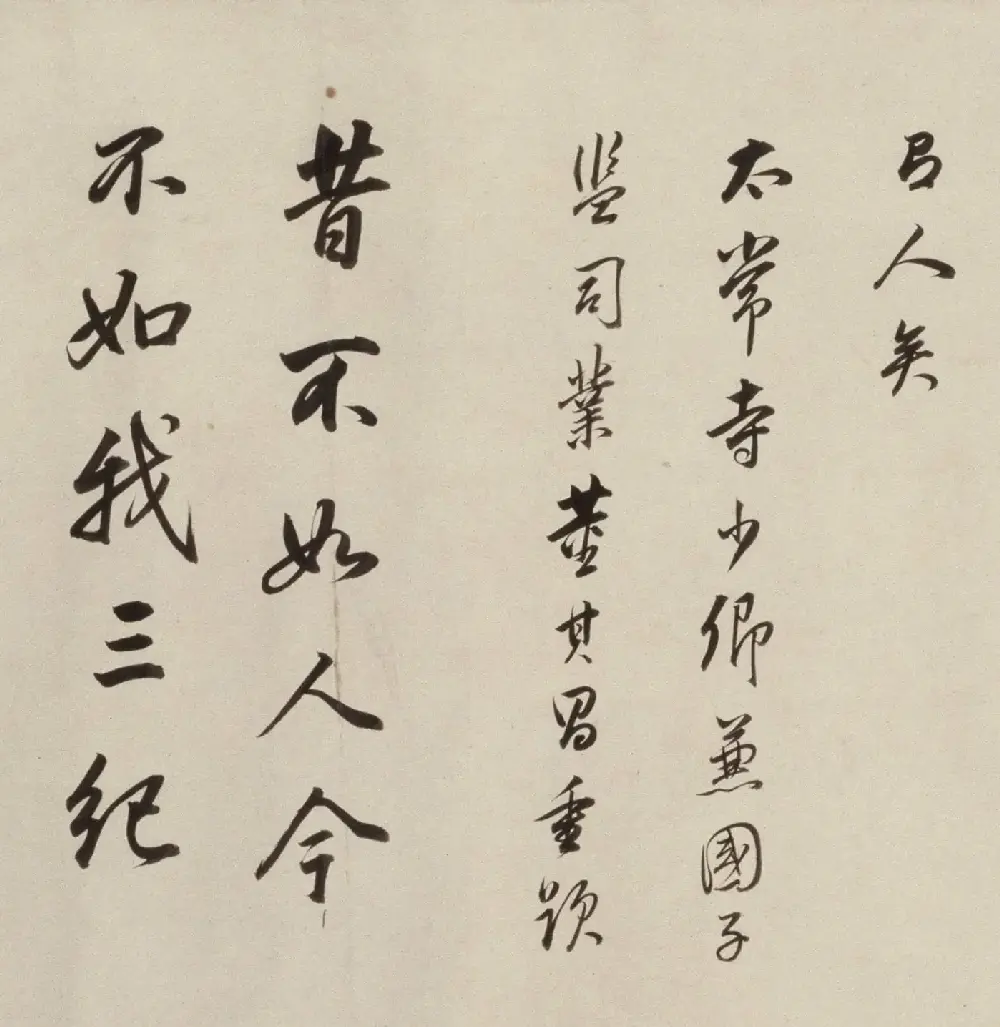 吕人矣
太常寺少卿兼國子
監司業董其昌重題
昔不如人今
不如我三紀